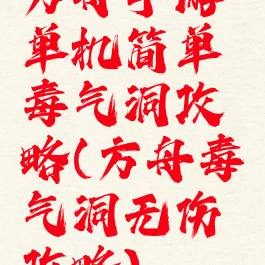 方舟手游
单机简单
毒气洞攻
略(方舟毒
气洞无伤
攻略)